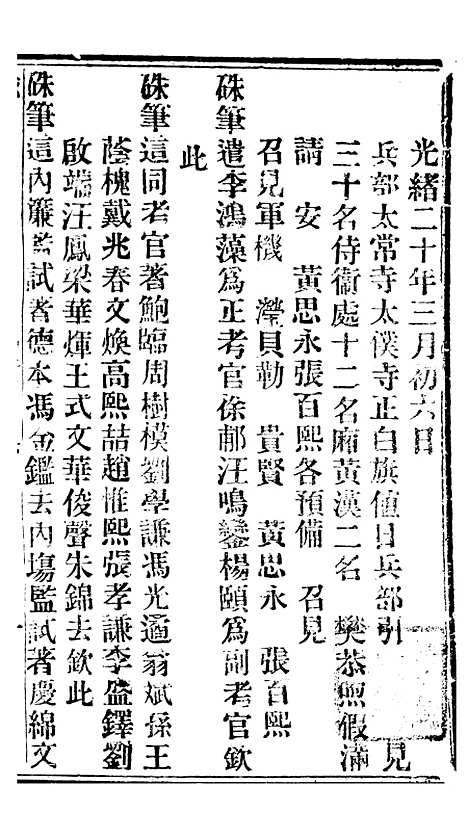 光緒二十年三月初六日
兵部太常寺太僕寺正白旗值日兵部引　見
三十名侍衛處十二名廂黃漢二名　樊恭煦假滿
請　安　黃思永張百熙各預備　召見
召見軍機　瀅貝勒　貴賢　黃思永　張百熙
硃筆遣李鴻藻為正考官徐郙汪鳴鑾楊頤為副考官欽
此
硃筆這同考官著鮑臨周樹模劉學謙馮光遹翁斌孫王
蔭槐戴兆春文煥高熙喆趙惟熙張孝謙李盛鐸劉
啟端汪鳳梁華煇王式文華俊聲朱錦去欽此
硃筆這內簾監試著德本馮金鑑去內場監試著慶綿文